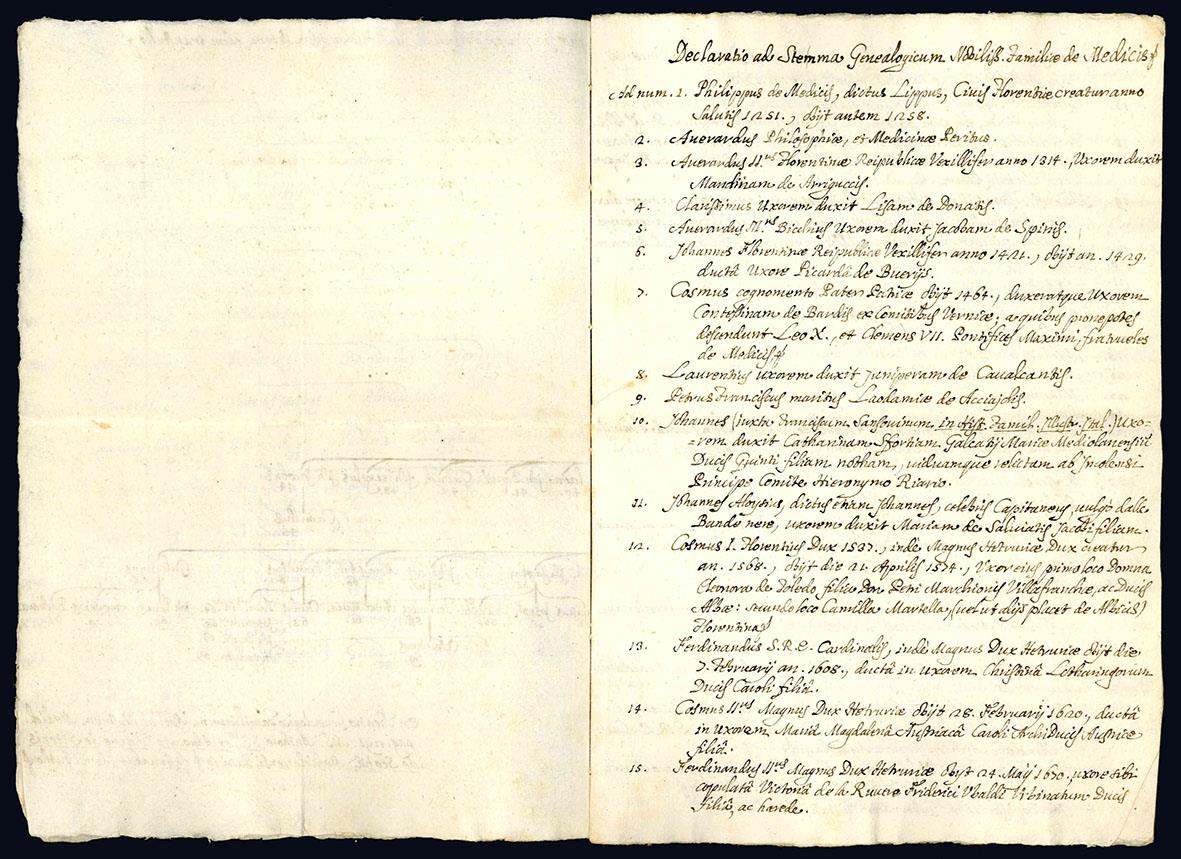 Declaratio ad Stemma Genealogicum Nobiliss. Familiæ de Medicis
Ad num. 1. Philippus de Medicis, dictus Lippus, Civis Florentiæ creatur anno
Salutis 1251., obijt autem 1258.
2. Averardus Philosophiæ, et Medicinæ Peritus.
3. Averardus II.us Florentinæ Reipublicæ Vexillifer anno 1314., Uxorem duxit
Mandinam de Arriguccis.
4. Clarissimus Uxorem duxit Lisam de Donatis.
5. Averardus III.us Bicchius Uxorem duxit Jacobam de Spinis.
6. Johannes Florentinæ Reipublicæ Vexillifer anno 1421., obijt an. 1429.
ductâ Uxore Picardâ de Buerijs.
7. Cosmus cognomento Pater Patriæ obijt 1464., duxeratque Uxorem
Contessinam de Bardis ex Comitibus Verniæ; a quibus pronepotes
descendunt Leo X., et Clemens VII. Pontifices Maximi, fratrueles
de Medicis
8. Laurentius uxorem duxit Juniperam de Cavalcantis.
9. Petrus Franciscus maritus Laodamiæ de Acciajolis.
10. Johannes (iuxta Franciscum Sansovinum in Hist. Famil. Illustr. Ital.) Uxo=
=rem duxit Catharinam Sfortiam Galeatij Mariæ Mediolanensis
Ducis Quinti filiam notham, viduamque relictam ab Imolensi
Principe Comite Hieronymo Riario.
11. Johannes Aloysius, dictus etiam Johannes, celebris Capitaneus, vulgo dalle
Bande nere, uxorem duxit Mariam de Salviatis Jacobi filiam.
12. Cosmus I. Florentius Dux 1537., inde Magnus Hetruriæ Dux creatur
an. 1568., obijt die 21. Aprilis 1574., Uxor eius primo loco Domna
Eleonora de Toledo filia Don Petri Marchionis Villafranchæ, ac Ducis
Albæ: secundo loco Camilla Martella, (vel ut alijs placet de Albicis)
Florentina
13. Ferdinandus S.R.E. Cardinalis, inde Magnus Dux Hetruriæ obijt die
7. Februarij an. 1608., ductâ in uxorem Christinâ Lotharingorum
Ducis Caroli filiâ.
14. Cosmus II.us Magnus Dux Hetruriæ obijt 28. Februarij 1620., ductâ
in uxorem Mariâ Magdalenâ Austriacâ Caroli ArchiDucis Austriæ
filiâ.
15. Ferdinandus II.us Magnus Dux Hetruriæ obijt 24. Maij 1670. uxore sibi
copulatâ Victoriâ de la Ruvere Friderici Ubaldi Urbinatum Ducis
filiâ, ac hærede.